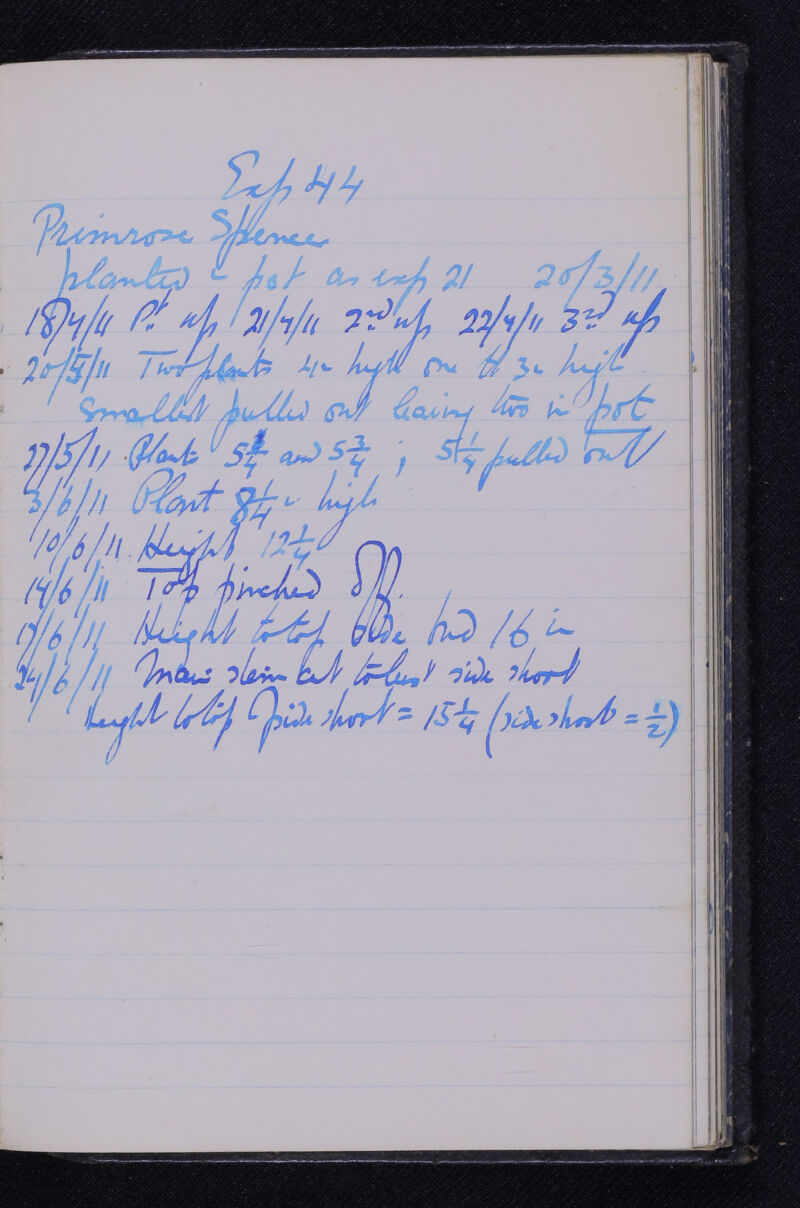 Exp 44
Primrose Spencer
planted in pot as exp 21 20/3/11
18/4/11 Pt up 21/4/11 2nd up 22/4/11 3rd up
20/5/11 Two plants 4in high one 3in high
Smallest pulled out leaving two in pot
27/5/11 Plants 5 1/4 and 5 3/4 ; 5 1/4 pulled out
3/6/11 Plant 8 1/4 in high
10/6/11 Height 12 1/4
14/6/11 Top pinched off.
17/6/11 Height to top side bud 16 in
24/6/11 Main stem cut to last side shoot
height to top side shoot = 15 1/4 (side shoot = 1/2)